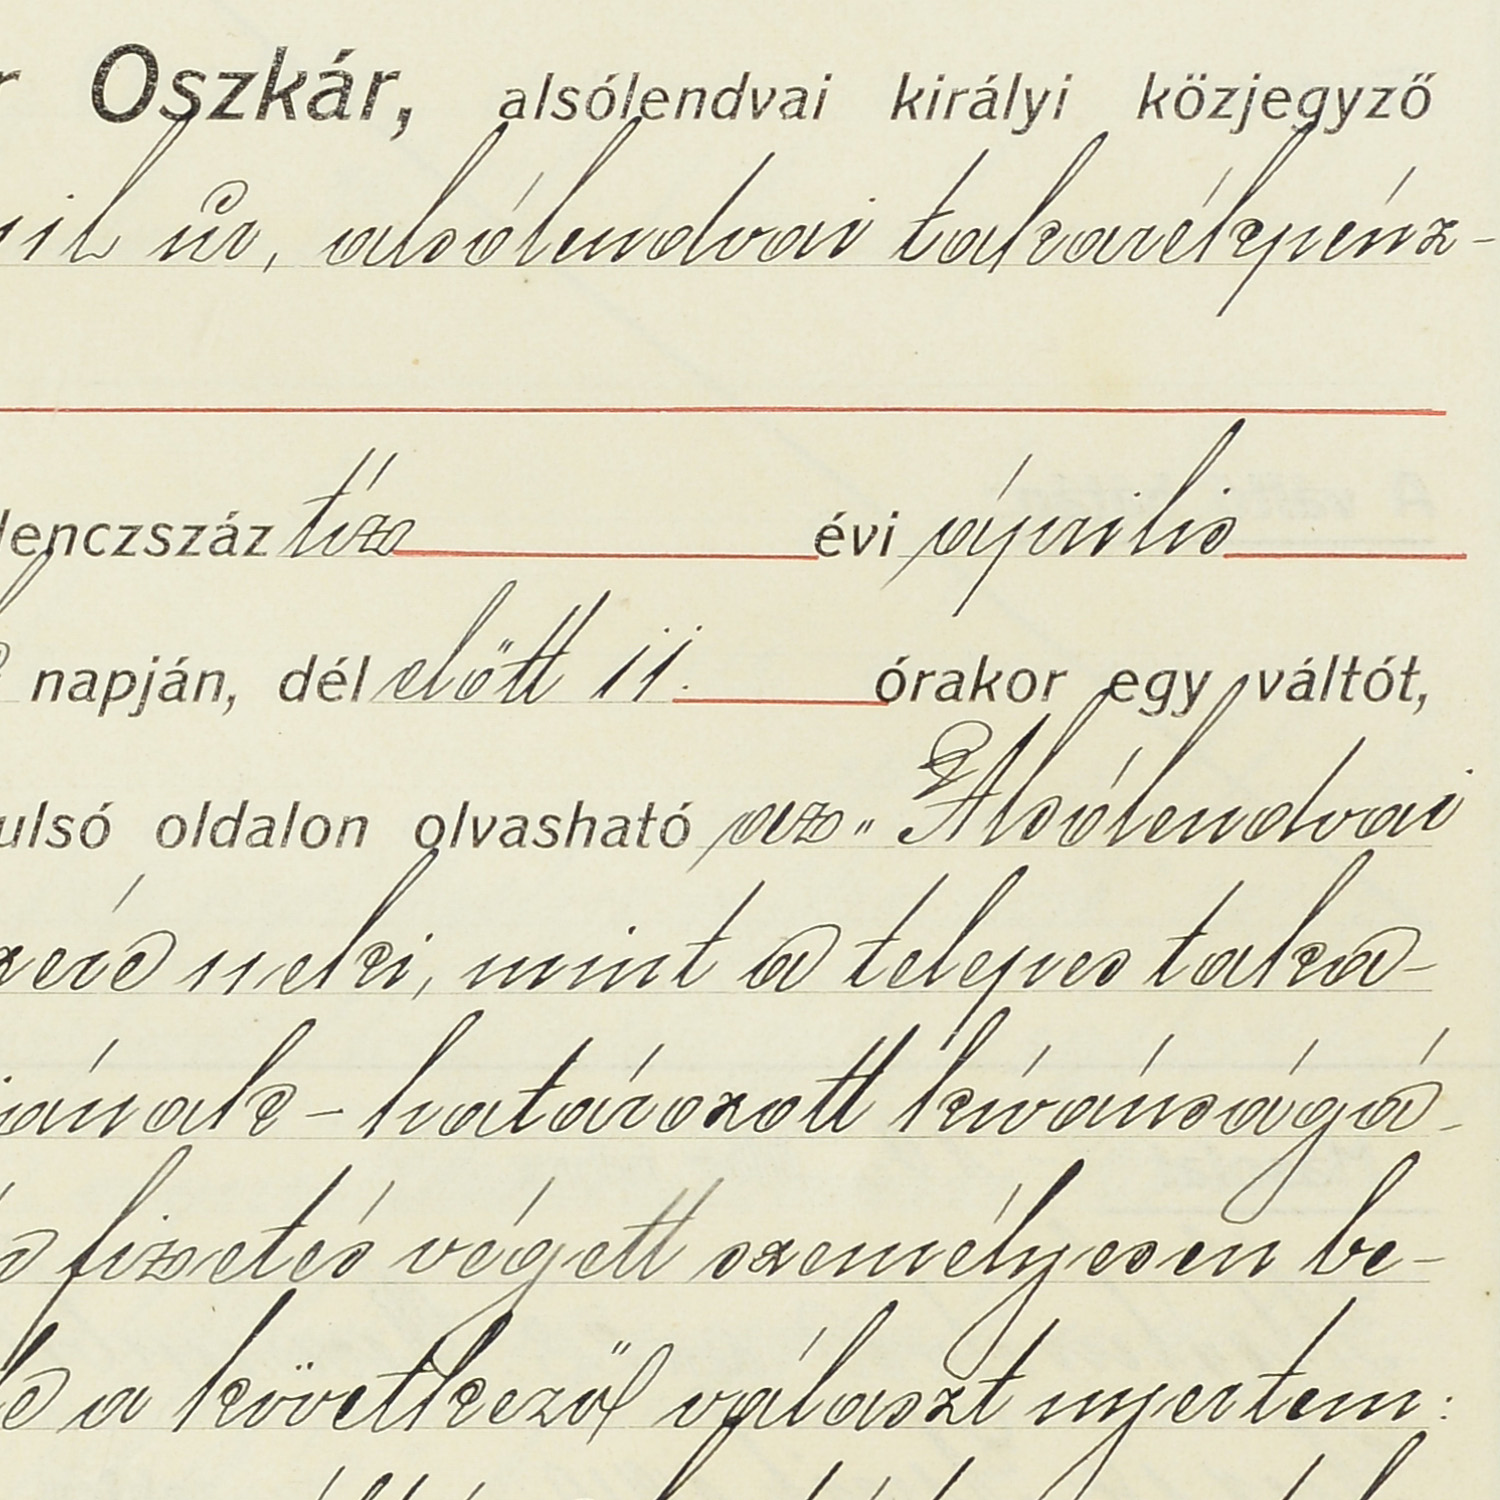 r Oszkár, alsólendvai királyi közjegyző
úr, alsólendvai takarékpénz-
lenczszáz tíz évi április
napján, dél előtt 11. órakor egy váltót,
ulsó oldalon olvasható az "Alsólendvai
neki, mint a telepes taka-
ának - határozott kívánságá-
fizetés végett személyesen be-
a következő választ nyertem: